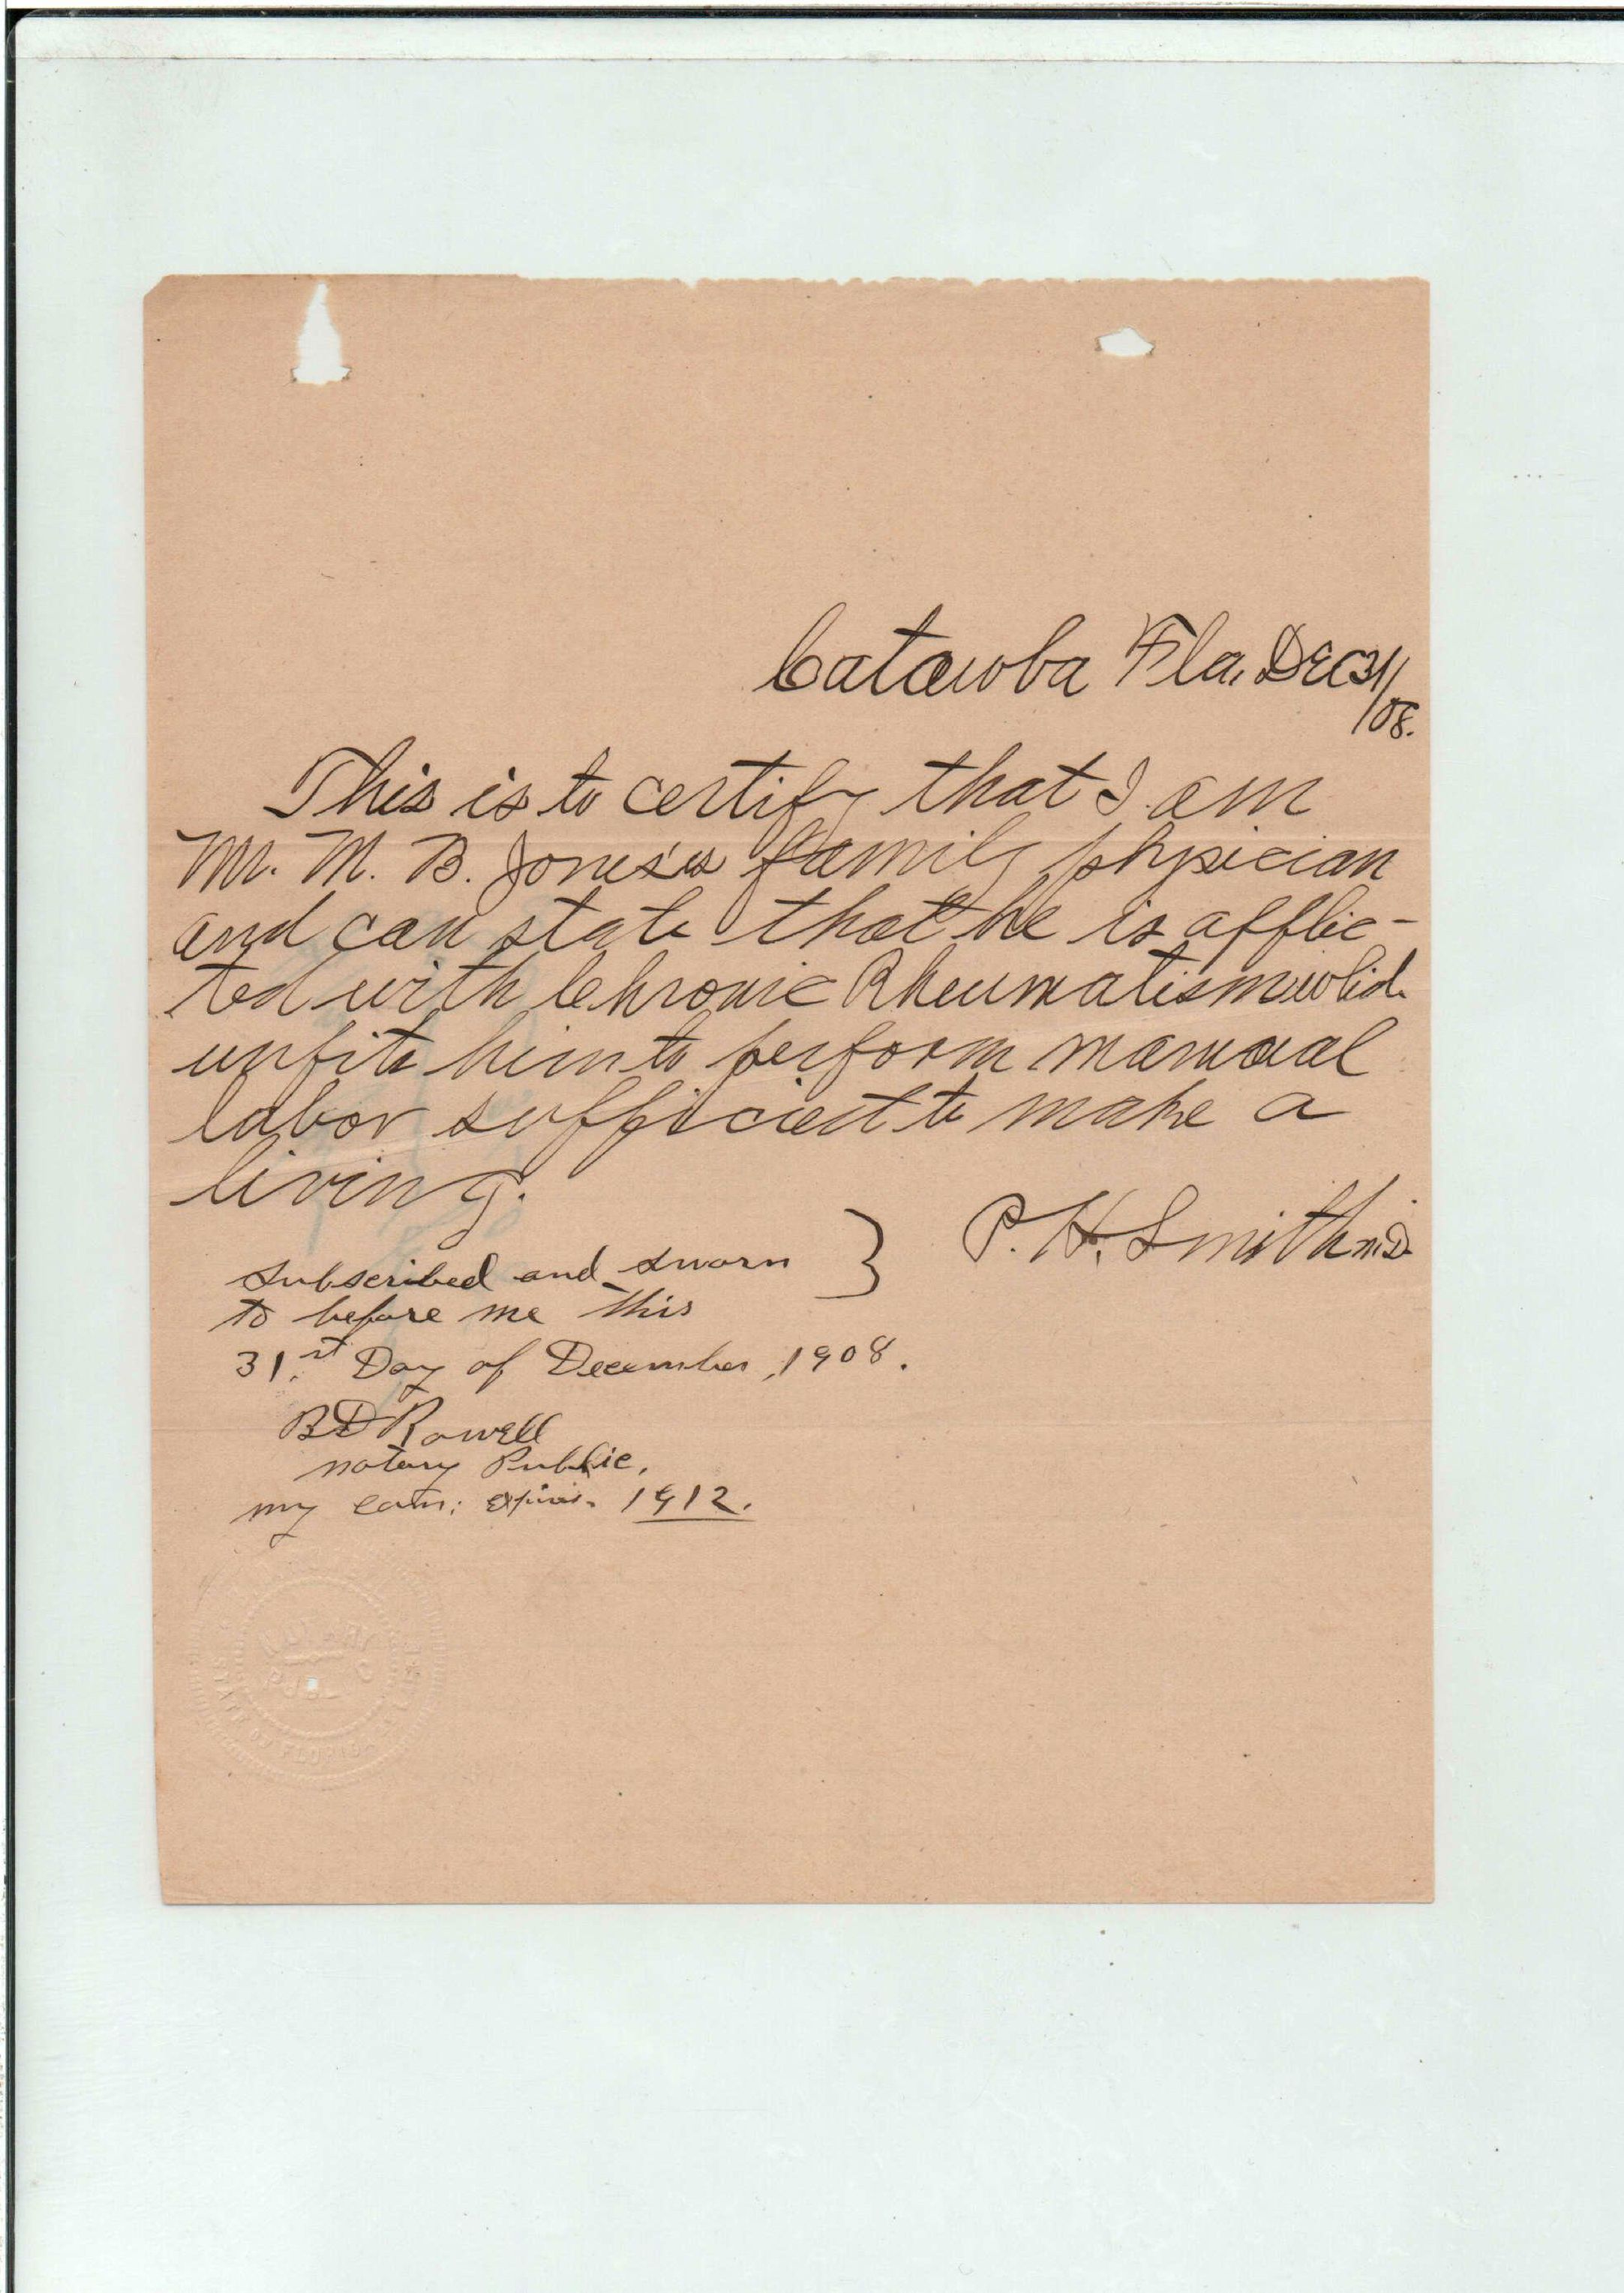 Catawba Fla, Dec 31/
/08.
This is to certify that I am
Mr. M. B. Jones's family physician
and can state that he is afflic-
ted with Chronic Rheumatism which
unfits him to perform manual
labor sufficient to make a
living.
P. H. Smith M.D.
subscribed and sworn }
to before me this
31.st Day of December, 1908.
B D Rowell
notary Public.
my com: expires. 1912.
NOTARY
PUBLIC
STATE OF FLORIDA